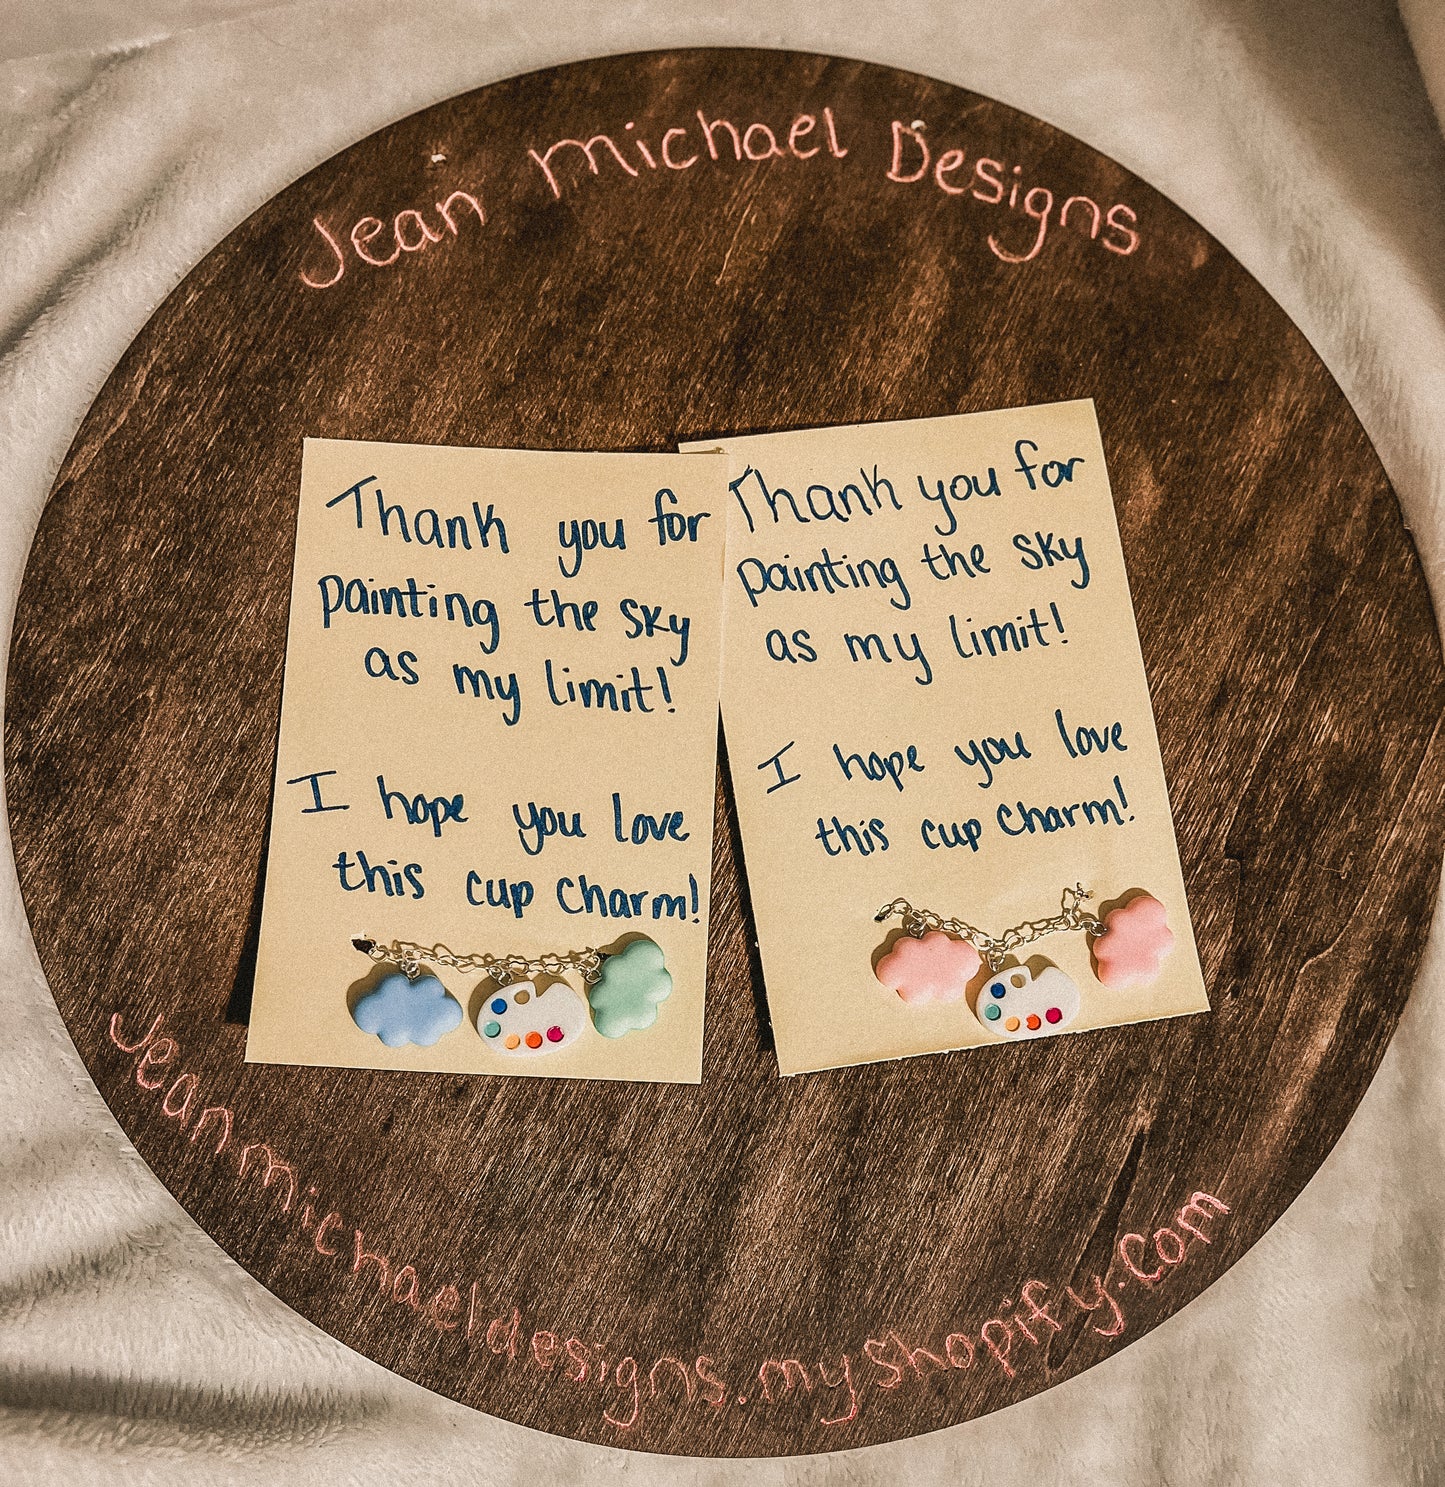 Jean Michael Designs
Thank you for
painting the sky
as my limit!
I hope you love
this cup charm!
Thank you for
painting the sky
as my limit!
I hope you love
this cup charm!
Jeanmichaeldesigns.myshopify.com